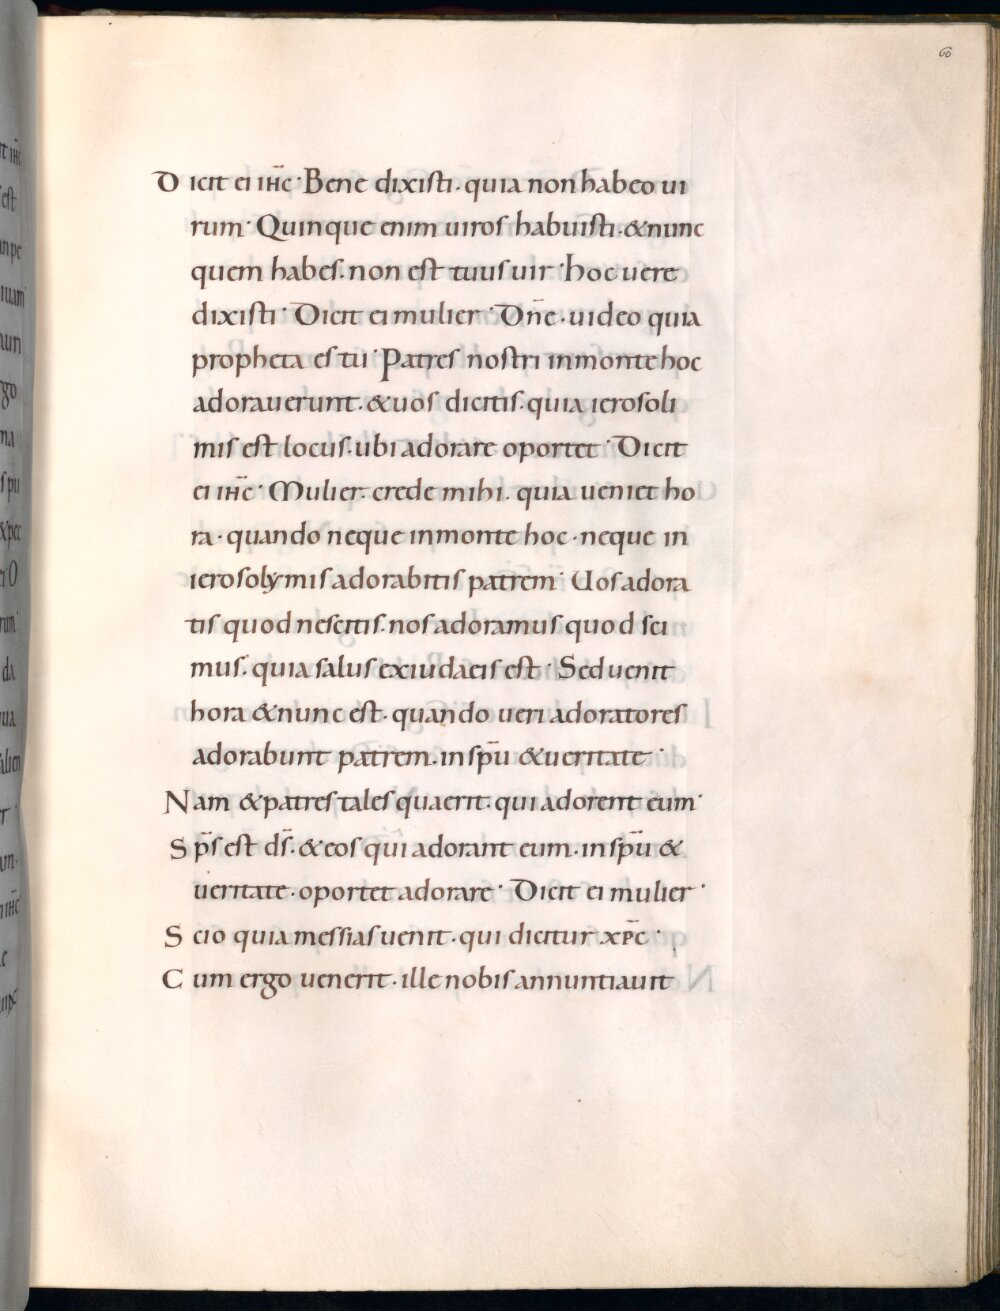 60
Dicit ei ihc̄· Bene dixisti· quia non habeo ui
rum· Quinque enim uiros habuisti· & nunc
quem habes· non est tuus uir· hoc uere
dixisti· Dicit ei mulier· Dn̄e· uideo quia
propheta es tu· Patres nostri in monte hoc
adorauerunt· & uos dicitis· quia ierosoli
mis est locus· ubi adorare oportet· Dicit
ei ihc̄· Mulier· crede mihi· quia ueniet ho
ra· quando neque in monte hoc· neque in
ierosolymis adorabitis patrem· Uos adora
tis quod nescitis· nos adoramus quod sci
mus· quia salus ex iudaeis est· Sed uenit
hora & nunc est· quando ueri adoratores
adorabunt patrem· in spū & ueritate·
Nam & patres tales quaerit· qui adorent eum·
Sp̄s est ds̄· & eos qui adorant eum· in spū &
ueritate· oportet adorare· Dicit ei mulier·
Scio quia messias uenit· qui dicitur xp̄c·
Cum ergo uenerit· ille nobis annuntiauit